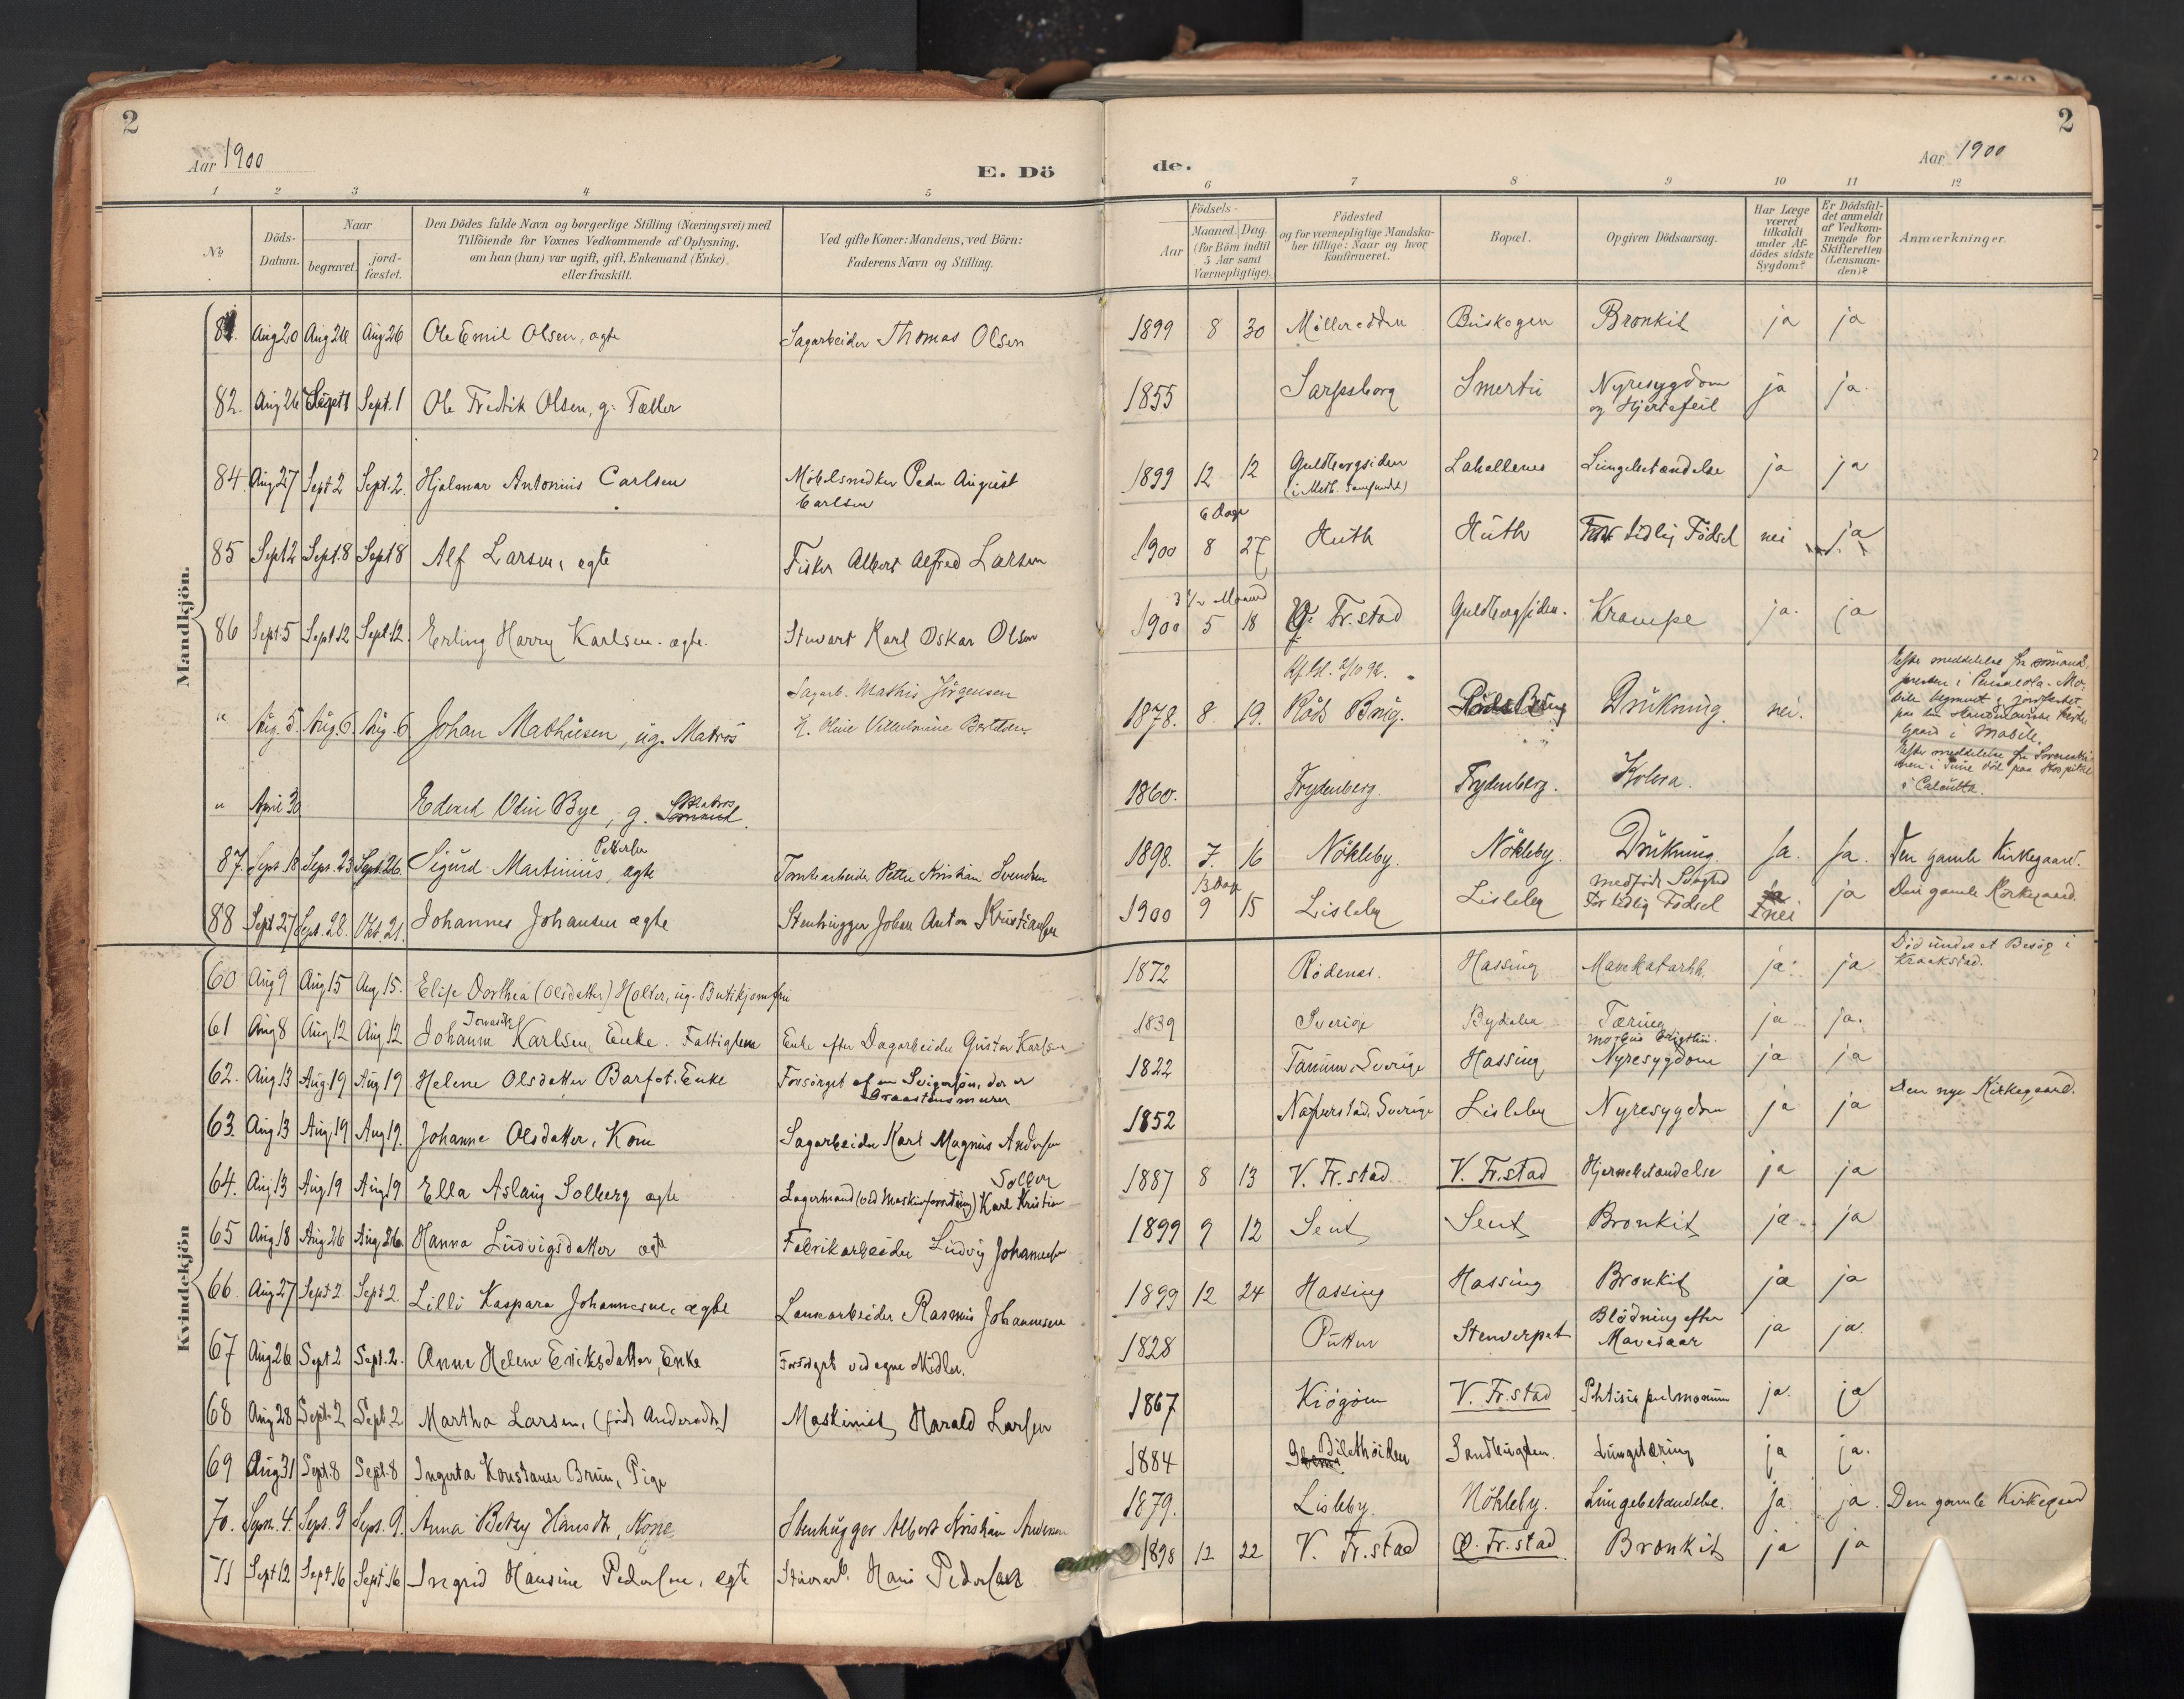 2
2
Aar 1900
E. Dö
de.
Aar 1900
1 2 3 4 5
6 7 8 9 10 11 12
No
Döds-Datum.
Naar
begravet. jordfæstet.
Den Dödes fulde Navn og borgerlige Stilling (Næringsvei) med
Tilföiende for Voxnes Vedkommende af Oplysning,
om han (hun) var ugift, gift, Enkemand (Enke)
eller fraskilt.
Ved gifte Koner: Mandens, ved Börn:
Faderens Navn og Stilling.
Födsels-
Aar Maaned. Dag.
(for Börn indtil
5 Aar samt
Værnepligtige).
Födested
og for værnepligtige Mandska-
ber tillige: Naar og hvor
konfirmeret.
Bopæl.
Opgiven Dödsaarsag.
Har Læge
været
tilkaldt
under Af-
dödes sidste
Sygdom?
Er Dödsfal-
det anmeldt
af Vedkom-
mende for
Skifteretten
(Lensman-
den)?
Anmærkninger.
Mandkjön.
81. Aug 20 Aug 26 Aug 26 Ole Emil Olsen, ægte Sagarbeider Thomas Olsen 1899 8 30 Mölleredden Buskogen Bronkit ja ja
82. Aug 26 Sept 1 Sept. 1 Ole Fredrik Olsen, g. Tæller 1855 Sarpsborg Smertu Nyresygdom og Hjertefeil ja ja.
84. Aug 27 Sept 2 Sept. 2. Hjalmar Antonius Carlsen Möbelsnedker Peder August Carlsen 1899 12 12 Guldbergsiden (i Meth. Samfundet) Lahellenes Lungebetændelse ja ja
85 Sept 2 Sept. 8 Sept 8 Alf Larsen, ægte Fisker Albert Alfred Larsen 6 Dage 1900 8 27 Huth Huth For tidlig Födsel nei ja
86 Sept. 5 Sept 12 Sept. 12. Erling Harry Karlsen. ægte. Stuvart Karl Oskar Olsen 3 1/2 Maaned 1900 5 18 Fr. stad Guldbergsiden. Krampe ja. ja
" Aug. 5. Aug. 6. Aug. 6 Johan Mathiesen, ug. Matros Sagarb. Mathis Jörgensen 1878. 8. 19. Röds Brug. Röds Brug Drukning. nei.
" April 30 Edvard Odin Bye, g. Matros Sömand. 1860. Frydenberg. Frydenberg. Kolera. i Calcutta.
87. Sept. 18 Sept. 23 Sept. 26. Sigurd Martinius Pettersen, ægte Tomtearbeider Petter Kristian Svendsen 1898. 7. 16 Nökleby. Nökleby. Drukning. Ja. Ja. Den gamle Kirkegaard.
88 Sept 27 Sept. 28. Okt. 21. Johannes Johansen ægte Stenhugger Johan Anton Kristiansen 13 Dage 1900 9 15 Lisleby Lisleby medfödt Svaghed For tidlig Födsel nei ja Den gamle Kirkegaard.
Kvindekjön
60 Aug 9 Aug 15 Aug 15. Elise Dorthea (Olsdatter) Holter, ug. Butikjomfru 1872 Rödenes. Hassing Mavekatarrh. ja. ja Död under et Besög i Kraakstad.
61 Aug 8 Aug 12 Aug 12 Johanne Karlsen, Enke. Fattiglem Enke efter Dagarbeider Gustav Karlsen 1839 Sverige Bydalen Tæring ja ja.
62. Aug 13 Aug 19 Aug 19 Helene Olsdatter Barfot. Enke Forsörget af en Svigersön, der er Graastensmurer 1822 Tanum, Sverige Hassing morbus Brightii. Nyresygdom ja ja
63. Aug 13 Aug 19 Aug 19. Johanne Olsdatter, Kone Sagarbeider Karl Magnus Andersen 1852 Nafverstad. Sverige Lisleby Nyresygdom ja ja Den nye Kirkegaard.
64. Aug 13 Aug 19 Aug 19 Ella Aslaug Solberg ægte Lagermand (ved Maskinforretning) Karl Kristian Solberg 1887 8 13 V. Fr. stad V. Fr. stad Hjernebetændelse ja ja
65 Aug 18 Aug 26 Aug 26. Hanna Ludvigsdatter ægte Fabrikarbeider Ludvig Johannesen 1899 9 12 Seut Seut Bronkit ja ja
66 Aug 27 Sept 2 Sept 2. Lilli Kaspara Johannesen, ægte Lænsearbeider Rasmus Johannesen 1899 12 24 Hassing Hassing Bronkit ja ja
67 Aug 26 Sept 2 Sept. 2. Anne Helene Eriksdatter, Enke Forsörget ved egne Midler. 1828 Putten Stenverpet Blödning efter Mavesaar ja ja.
68 Aug 28 Sept. 2 Sept. 2 Martha Larsen, (födt Andersdtr) Maskinist Harald Larsen 1867 Kiögöen V. Fr. stad Phtisis pulmonum ja. ja
69 Aug 31 Sept. 8 Sept. 8 Ingerta Konstanse Brun, Pige 1884 Lungetæring ja ja.
70. Sept. 4. Sept. 9 Sept. 9. Anna Betzy Hansdtr, Kone, Stenhugger Albert Kristian Andersen 1879. Lisleby. Nökleby. Lungebetændelse. Ja. ja. Den gamle Kirkegaard
71 Sept 12 Sept 16 Sept. 16 Ingrid Hansine Pedersen, ægte Hans Pedersen 1898 12 22 V. Fr. stad Ø. Fr. stad Bronkit ja ja